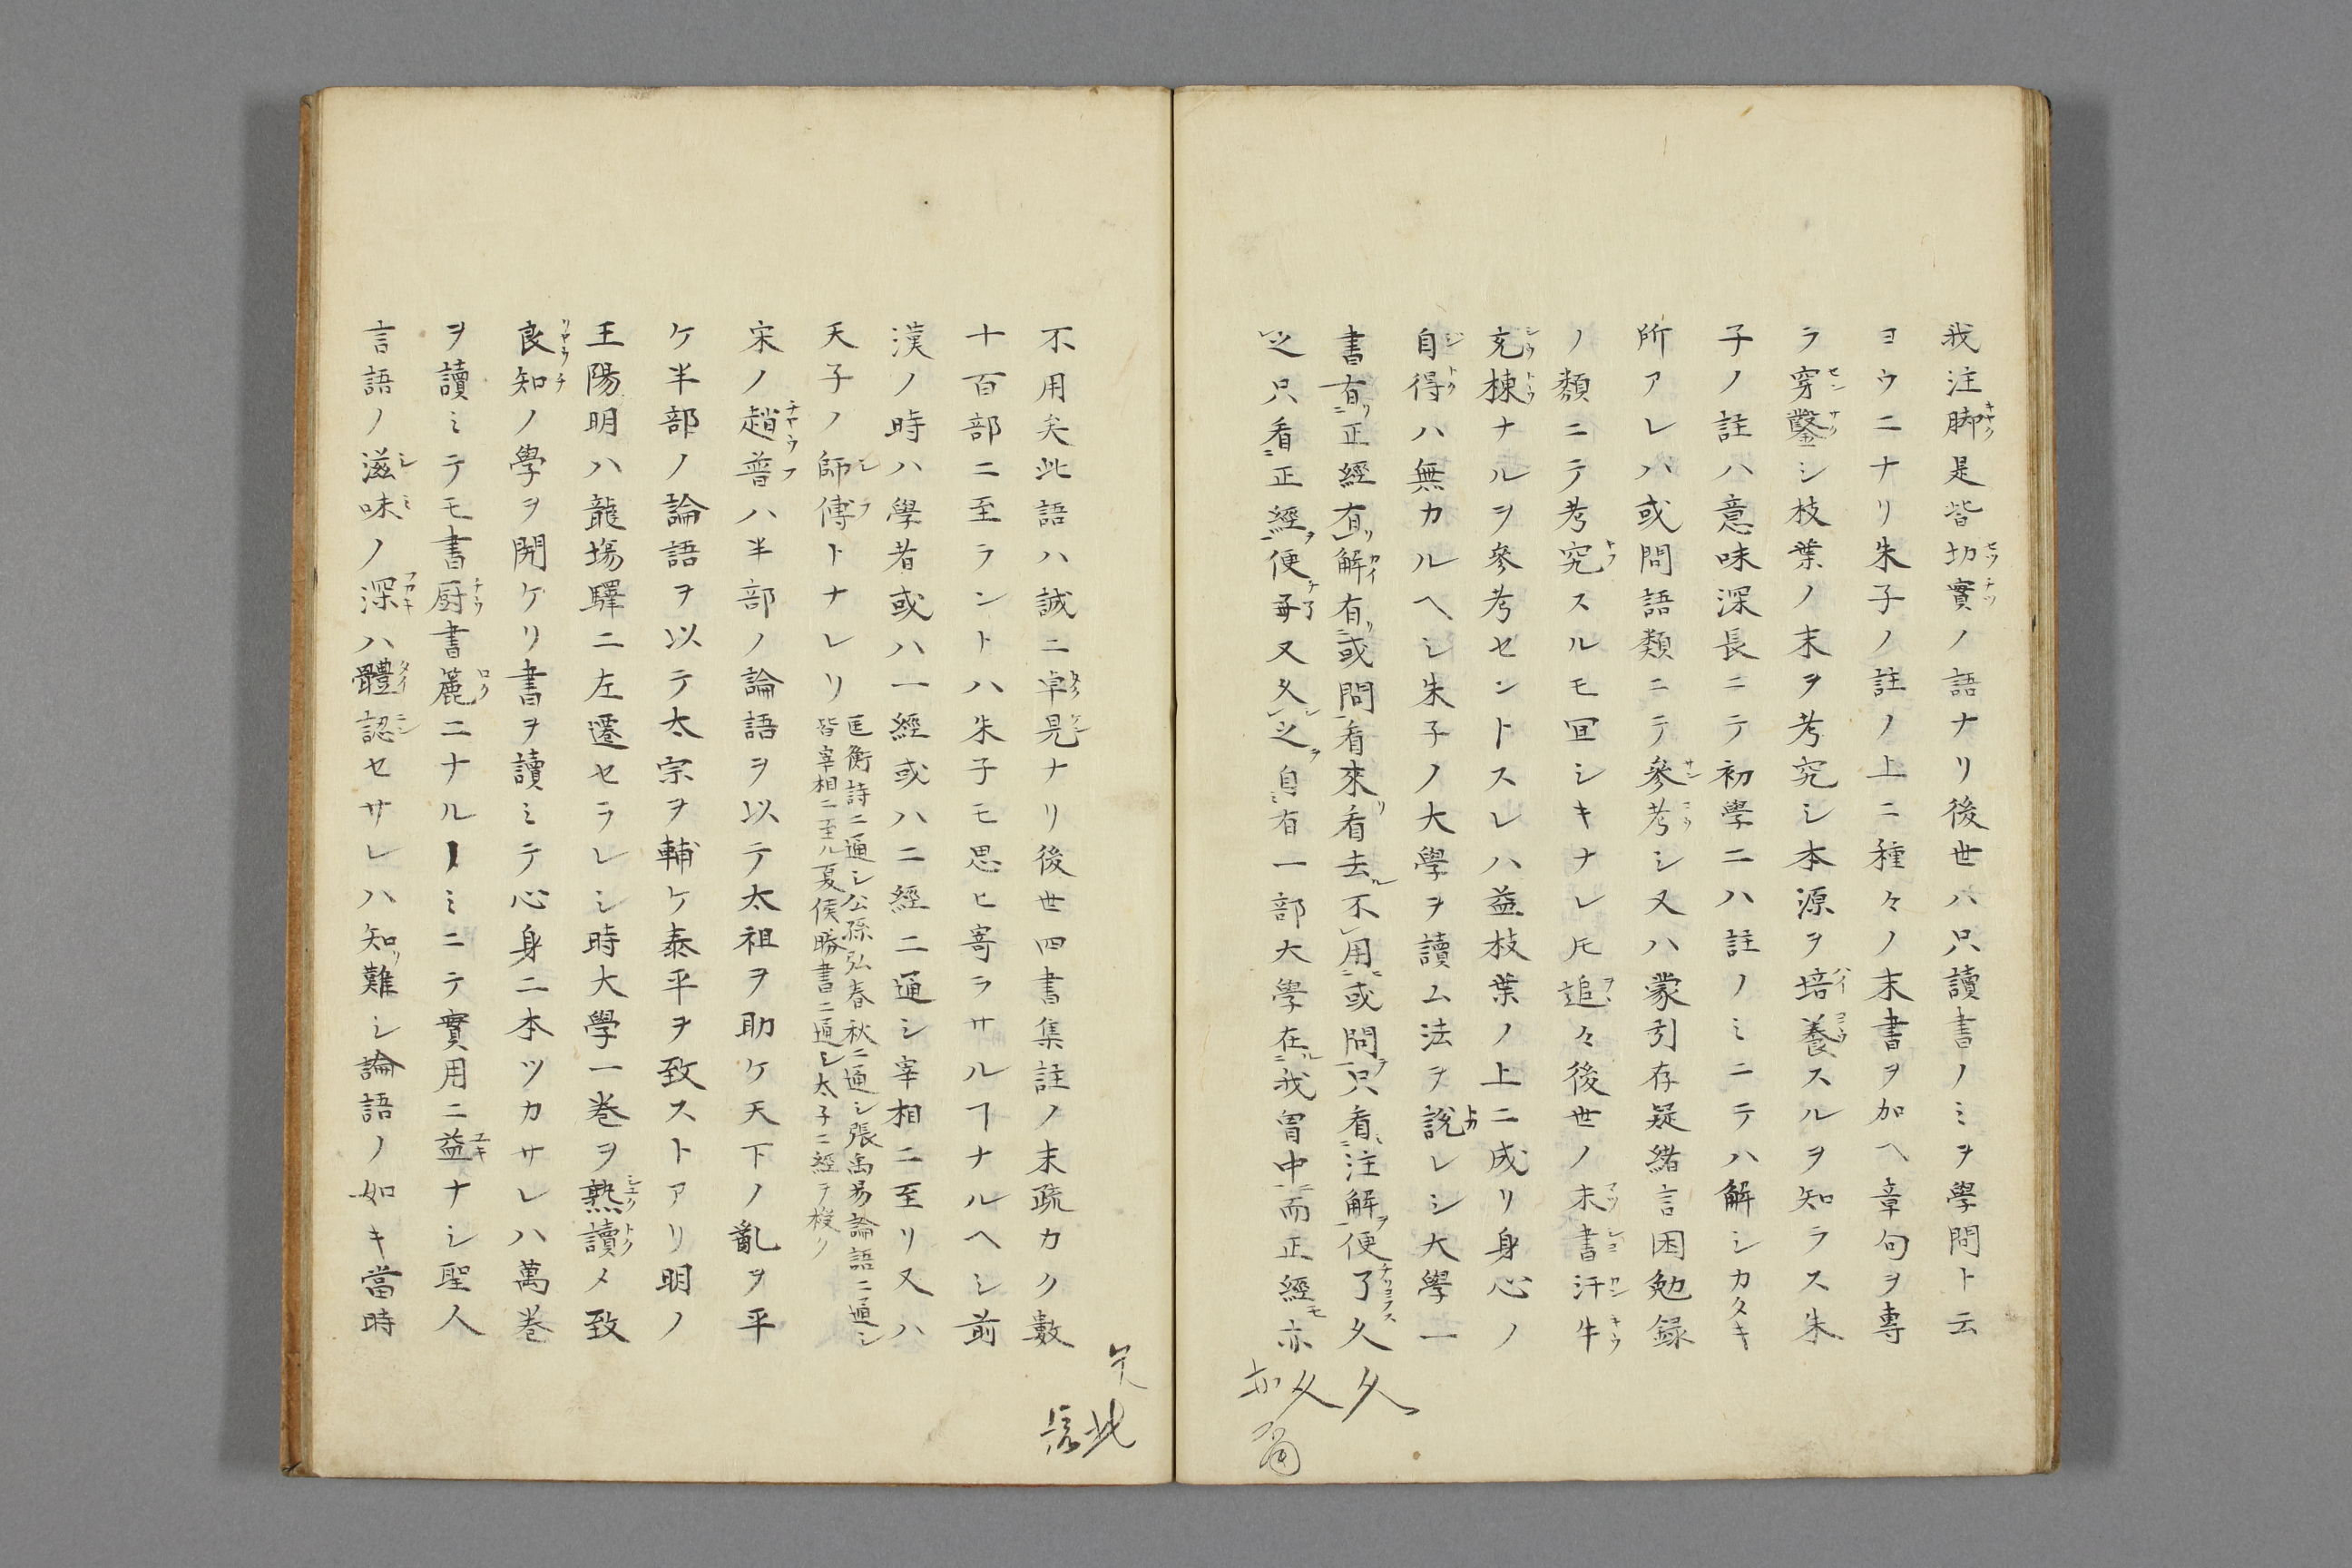 我注脚是皆切實ノ語ナリ後世ハ只讀書ノミヲ學問ト云
ヨウニナリ朱子ノ註ノ上ニ種々ノ末書ヲ加ヘ章句ヲ專
ラ穿鑿シ枝葉ノ末ヲ考究シ本源ヲ培養スルヲ知ラス朱
子ノ註ハ意味深長ニテ初學ニハ註ノミニテハ解シカタキ
所アレハ或問語類ニテ參考シ又ハ蒙引存疑緒言困勉録
ノ類ニテ考究スルモ冝シキナレ𪜈追々後世ノ末書汗牛
充棟ナルヲ參考セントスレハ益枝葉ノ上ニ成リ身心ノ
自得ハ無カルヘシ朱子ノ大學ヲ讀ム法ヲ説レシ大學一
書有正經有解有或問看來看去不用或問只看注解便了久
之只看正經便了又久之自有一部大學在我胷中而正經亦
久
久
亦
不用矣此語ハ誠ニ卓見ナリ後世四書集註ノ末疏カク數
十百部ニ至ラントハ朱子モ思ヒ寄ラサルヿナルヘシ前
漢ノ時ハ學者或ハ一經或ハ二經ニ通シ宰相ニ至リ又ハ
天子ノ師傅トナレリ
匡衡詩ニ通シ公孫弘春秋ニ通シ張禹易論語ニ通シ
皆宰相ニ至ル夏侯勝書ニ通シ太子ニ經ヲ授ク
宋ノ趙普ハ半部ノ論語ヲ以テ太祖ヲ助ケ天下ノ亂ヲ平
ケ半部ノ論語ヲ以テ太宗ヲ輔ケ泰平ヲ致ストアリ明ノ
王陽明ハ龍塲驛ニ左遷セラレシ時大學一巻ヲ熟讀メ致
良知ノ學ヲ開ケリ書ヲ讀ミテ心身ニ本ツカサレハ萬巻
ヲ讀ミテモ書厨書簏ニナルノミニテ實用ニ益ナシ聖人
言語ノ滋味ノ深ハ體認セサレハ知難シ論語ノ如キ當時